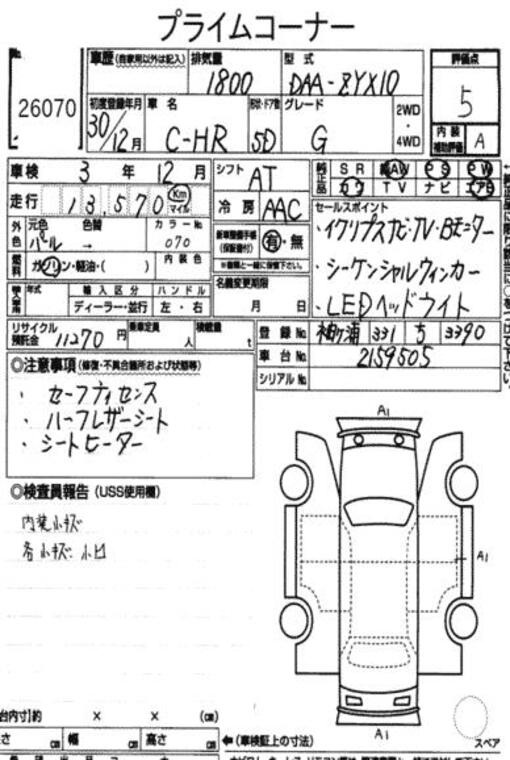 プライムコーナー
No.
26070
車歴 (自家用以外は記入)
排気量
1800
型式
DAA-ZYX10
評価点
5
内装
補助評価
A
初度登録年月
30/12月
車名
C-HR
形状・ドア数
5D
グレード
G
2WD
・
4WD
車検 3年 12月
シフト
AT
純正品
SR AW PS PW
カワ TV ナビ エアB
走行 13,570 Km マイル
冷房
AAC
セールスポイント
・イクリプスナビ・TV・Bモニター
・シーケンシャルウィンカー
・LEDヘッドライト
外色
元色 色替
パール →
カラーNo.
070
新車整備手帳
(保証書付)
有・無
※書類と一緒に保管下さい。
燃料
ガソリン・軽油・( )
内装色
名義変更期限
月 日
輸入車
年式
輸入区分
ディーラー・並行
ハンドル
左・右
リサイクル預託金
11270円
乗車定員
人
積載量
t
登録No. 袖ヶ浦 331 ち 3390
車台No. 2159505
シリアルNo.
◎注意事項 (修復・不具合箇所および状態等)
・セーフティセンス
・ハーフレザーシート
・シートヒーター
◎検査員報告 (USS使用欄)
内装小キズ
各小キズ、小凹
A1
A1
A1
スペア
台内寸)約 × × (cm)
さ cm 幅 cm 高さ cm
← (車検証上の寸法)